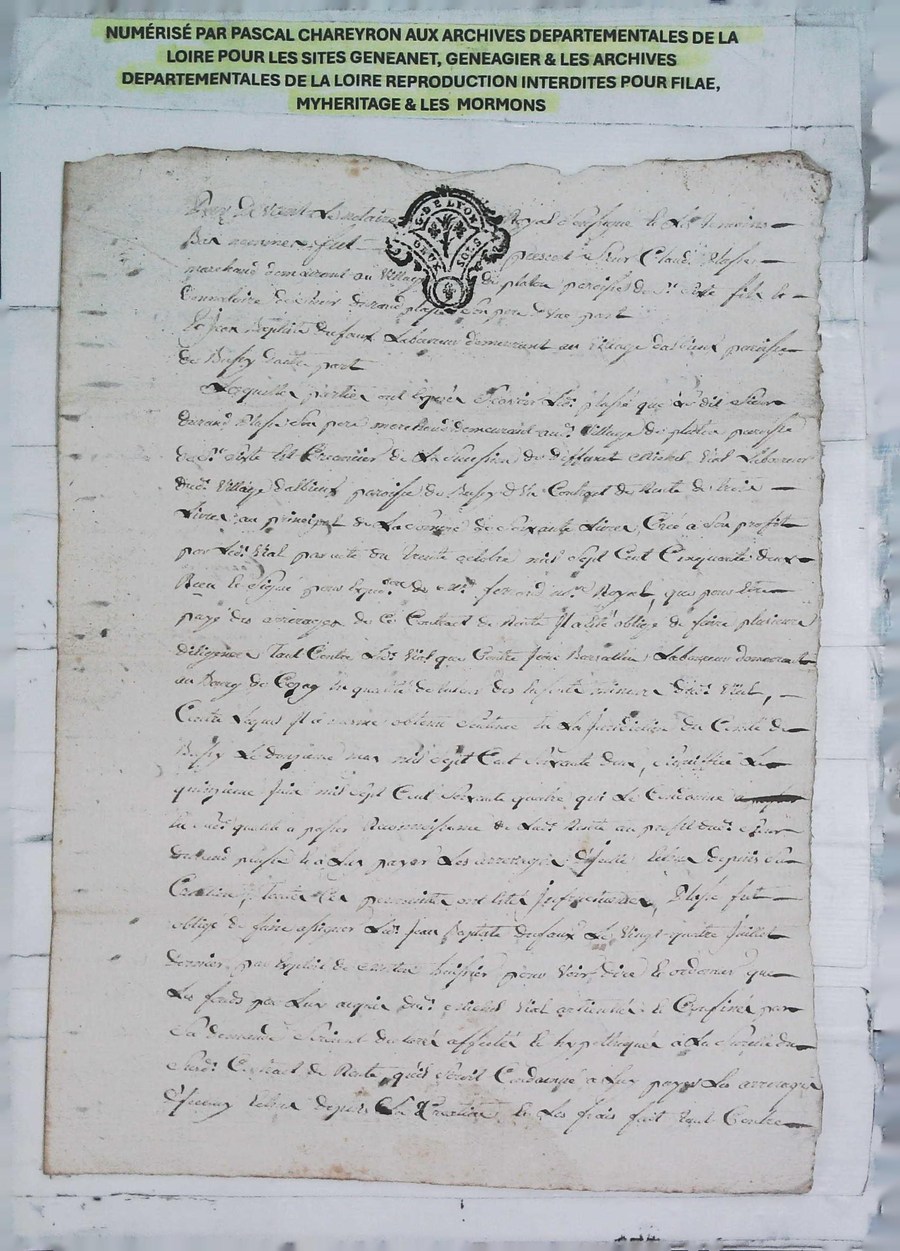 NUMÉRISÉ PAR PASCAL CHAREYRON AUX ARCHIVES DEPARTEMENTALES DE LA
LOIRE POUR LES SITES GENEANET, GENEAGIER & LES ARCHIVES
DEPARTEMENTALES DE LA LOIRE REPRODUCTION INTERDITES POUR FILAE,
MYHERITAGE & LES MORMONS
G. DE LYON
DEUX SOLS
Par devant le notaire Royal soussigné et les temoins
Bas nommes fut present Sieur Claude plasse
marchand demeurant au Village de paroisse de St fils et
durand plasse son pere d'une part
Et Jean Baptiste dufaux Laboureur demeurant au Village d'albieux paroisse
de Bussy d'autre part
Lesquelles parties ont sçavoir led. plasse que led. Sieur
durand plasse son pere marchand demeurant aud. Village de paroisse
de St est Creancier de La sucession de deffunt Michel Vial Laboureur
dud. Village d'albieux paroisse de Bussy d'un Contract de Rente de trois
Livres au principal de La somme de soixante Livres, Créé a son profit
par led. Vial par acte du trente octobre mil sept Cent Cinquante deux
Receu et signé pour de Me Royal, que pour être
payé des arrerages de ce Contract de Rente Il a été obligé de faire plusieurs
diligences tant Contre led. Vial que Contre Laboureur demeurant
au Bourg de Cezay en qualité de tuteur des Enfants mineurs dud. Vial,
Contre lequel Il a meme obtenu sentence en La Jurisdiction du Comté de
Bussy Le douzieme mars mil sept Cent soixante deux, signiffiée Le
quinzieme Juin mil sept Cent soixante quatre qui Le Condamne
en lad. qualité a passer Reconnoissance de Lad. Rente au profit dud. Sieur
durand plasse et a Luy payer Les arrerages d'Icelle echus depuis sa
Creation, toutes ces poursuites ont été Infructueuses, plasse fut
obligé de faire assigner led. Jean Baptiste dufaux Le Vingt quatre Juillet
dernier par Exploit de huissier pour Voir dire et ordonner que
Les fonds par Luy acquis dud. Michel Vial et Confinés par
sa demande seroient declarés affectés et hypothequés a La sureté du
susd. Contract de Rente, qu'il seroit Condamné a Luy payer Les arrerages
d'Iceluy echus depuis La Creation, et Les frais fait tant Contre